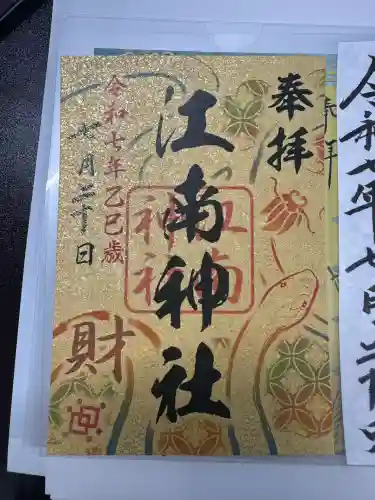 奉拝
江南神社
江南
神社
令和七年乙巳歳
七月二十日
財
令和七年七月二十日